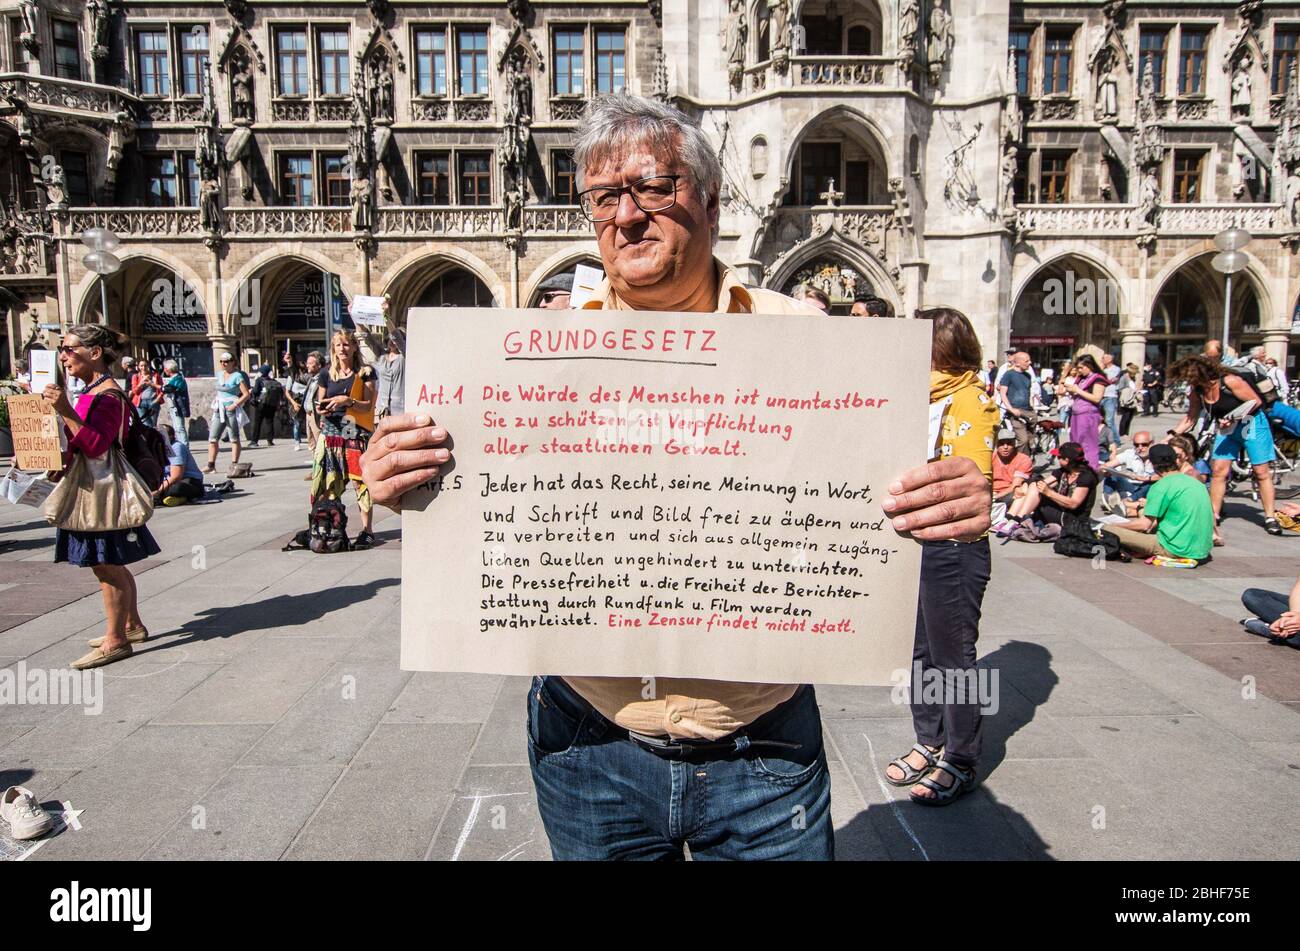 GRUNDGESETZ
Art. 1 Die Würde des Menschen ist unantastbar
Sie zu schützen ist Verpflichtung
aller staatlichen Gewalt.
Art. 5 Jeder hat das Recht, seine Meinung in Wort,
und Schrift und Bild frei zu äußern und
zu verbreiten und sich aus allgemein zugäng-
lichen Quellen ungehindert zu unterrichten.
Die Pressefreiheit u. die Freiheit der Berichter-
stattung durch Rundfunk u. Film werden
gewährleistet. Eine Zensur findet nicht statt.
STIMMEN
GEGENSTIMMEN
MÜSSEN
GEHÖRT
WERDEN
alamy
a
alamy
Image ID: 2BHF75E
www.alamy.com